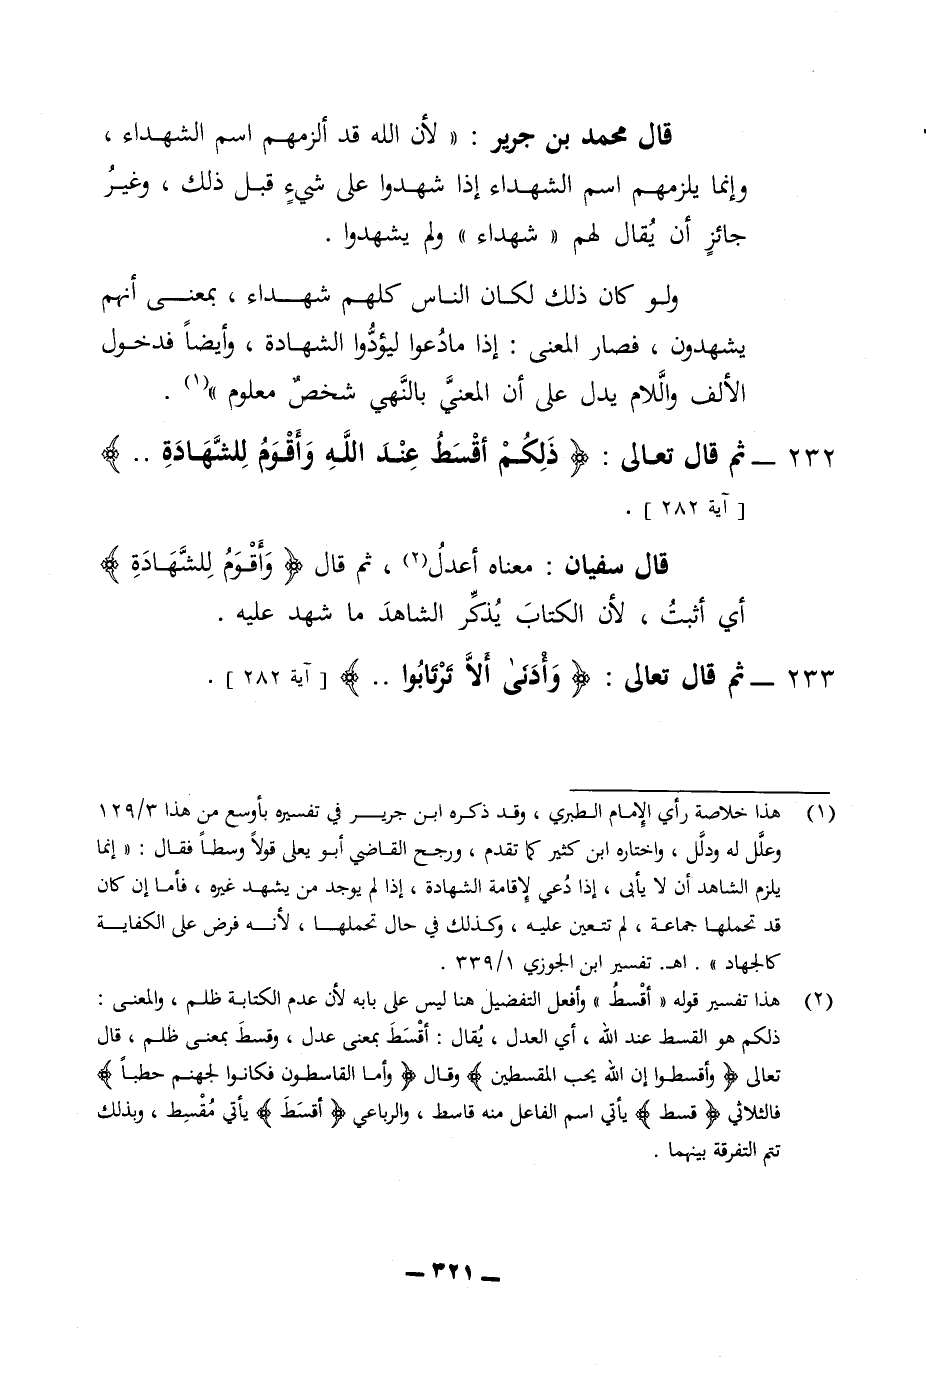 قال محمد بن جرير : « لأن الله قد ألزمهم اسم الشهداء ،
وإنما يلزمهم اسم الشهداء إذا شهدوا على شيءٍ قبل ذلك ، وغيرُ
جائزٍ أن يُقال لهم « شهداء » ولم يشهدوا .
ولو كان ذلك لكان الناس كلهم شهداء ، بمعنى أنهم
يشهدون ، فصار المعنى : إذا مادُعوا ليؤدُّوا الشهادة ، وأيضاً فدخول
الألف واللَّام يدل على أن المعنيَّ بالنَّهي شخصٌ معلوم »(١) .
٢٣٢ ــ ثم قال تعالى : ﴿ ذَلِكُمْ أَقْسَطُ عِنْدَ اللَّهِ وَأَقْوَمُ لِلشَّهَادَةِ .. ﴾
[ آية ٢٨٢ ] .
قال سفيان : معناه أعدلُ(٢) ، ثم قال ﴿ وَأَقْوَمُ لِلشَّهَادَةِ ﴾
أي أثبتُ ، لأن الكتابَ يُذكِّر الشاهدَ ما شهد عليه .
٢٣٣ ــ ثم قال تعالى : ﴿ وَأَدْنَىٰ أَلاَّ تَرْتَابُوا .. ﴾ [ آية ٢٨٢ ] .
(١) هذا خلاصة رأي الإمام الطبري ، وقد ذكره ابن جرير في تفسيره بأوسع من هذا ١٢٩/٣
وعلَّل له ودلَّل ، واختاره ابن كثير كما تقدم ، ورجح القاضي أبو يعلى قولاً وسطاً فقال : « إنما
يلزم الشاهد أن لا يأبى ، إذا دُعي لإقامة الشهادة ، إذا لم يوجد من يشهد غيره ، فأما إن كان
قد تحملها جماعة ، لم تتعين عليه ، وكذلك في حال تحملها ، لأنه فرض على الكفاية
كالجهاد » . اهـ. تفسير ابن الجوزي ٣٣٩/١ .
(٢) هذا تفسير قوله « أقْسطُ » وأفعل التفضيل هنا ليس على بابه لأن عدم الكتابة ظلم ، والمعنى :
ذلكم هو القسط عند الله ، أي العدل ، يُقال : أقْسَطَ بمعنى عدل ، وقسطَ بمعنى ظلم ، قال
تعالى ﴿ وأقسطوا إن الله يحب المقسطين ﴾ وقال ﴿ وأما القاسطون فكانوا لجهنم حطباً ﴾
فالثلاثي ﴿ قسط ﴾ يأتي اسم الفاعل منه قاسط ، والرباعي ﴿ أقسَطَ ﴾ يأتي مُقْسِط ، وبذلك
تتم التفرقة بينهما .
ــ ٣٢١ ــ